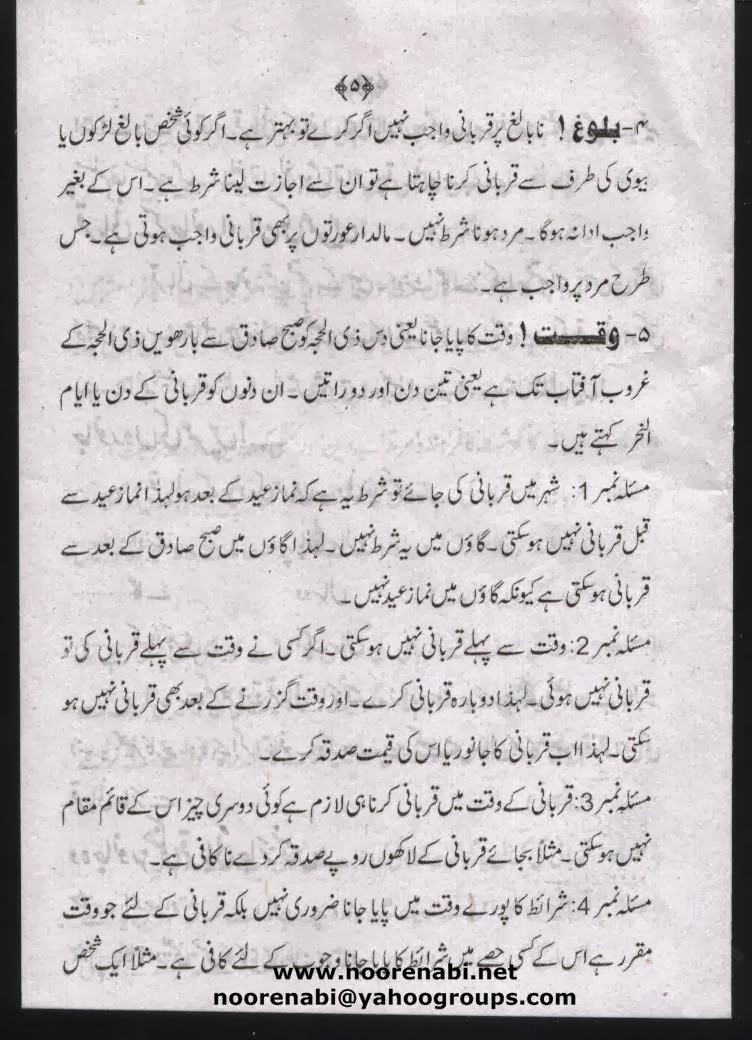 ﴿۵﴾
۴- بلوغ ! نابالغ پر قربانی واجب نہیں اگر کرے تو بہتر ہے۔ اگر کوئی شخص بالغ لڑکوں یا
بیوی کی طرف سے قربانی کرنا چاہتا ہے تو ان سے اجازت لینا شرط ہے۔ اس کے بغیر
واجب ادا نہ ہوگا۔ مرد ہونا شرط نہیں۔ مالدار عورتوں پر بھی قربانی واجب ہوتی ہے۔ جس
طرح مرد پر واجب ہے۔
۵- وقت ! وقت کا پایا جانا یعنی دس ذی الحجہ کو صبح صادق سے بارھویں ذی الحجہ کے
غروب آفتاب تک ہے یعنی تین دن اور دو راتیں۔ ان دنوں کو قربانی کے دن یا ایام
النحر کہتے ہیں۔
مسئلہ نمبر 1: شہر میں قربانی کی جائے تو شرط یہ ہے کہ نماز عید کے بعد ہو لہذا نماز عید سے
قبل قربانی نہیں ہوسکتی۔ گاؤں میں یہ شرط نہیں۔ لہذا گاؤں میں صبح صادق کے بعد سے
قربانی ہوسکتی ہے کیونکہ گاؤں میں نماز عید نہیں۔
مسئلہ نمبر 2: وقت سے پہلے قربانی نہیں ہوسکتی۔ اگر کسی نے وقت سے پہلے قربانی کی تو
قربانی نہیں ہوئی۔ لہذا دوبارہ قربانی کرے۔ اور وقت گزرنے کے بعد بھی قربانی نہیں ہو
سکتی۔ لہذا اب قربانی کا جانور یا اس کی قیمت صدقہ کرے۔
مسئلہ نمبر 3: قربانی کے وقت میں قربانی کرنا ہی لازم ہے کوئی دوسری چیز اس کے قائم مقام
نہیں ہوسکتی۔ مثلاً بجائے قربانی کے لاکھوں روپے صدقہ کردے ناکافی ہے۔
مسئلہ نمبر 4: شرائط کا پورے وقت میں پایا جانا ضروری نہیں بلکہ قربانی کے لئے جو وقت
مقرر ہے اس کے کسی حصے میں شرائط کا پایا جانا وجوب کے لئے کافی ہے۔ مثلاً ایک شخص
www.noorenabi.net
noorenabi@yahoogroups.com